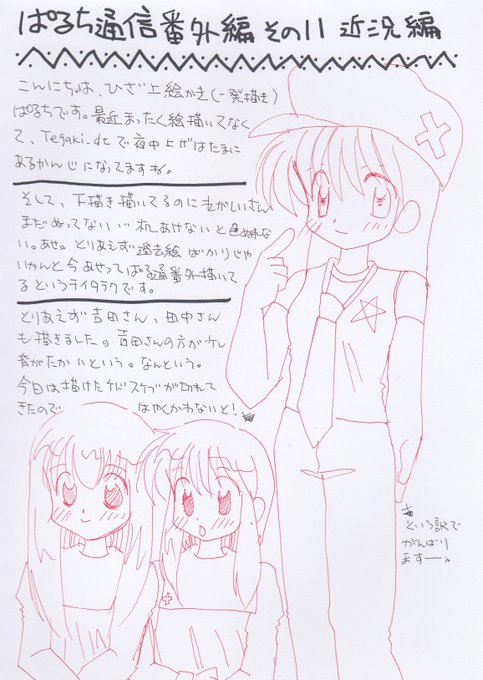 ぱるち通信番外編 その11 近況編
こんにちは、ひざ上絵かき(一発描き)
ぱるちです。最近まったく絵描いてなく
て、Tegaki.dtで夜中上げはたまに
あるかんじになってますね。
そして、下描き描いてるのにそがしいさん
まだぬってない…机あけないと色ぬれな
い。あせ。とりあえず過去絵ばかりじゃ
いかんと今あせってぱる通番外描いて
るというテイタラクです。
とりあえず吉田さん、田中さん
も描きました。吉田さんの方が少し
背がたかいという。なんという。
今日は描けたけどスケブが切れて
きたので はやくかわないと!
という訳で
がんばり
ますー。